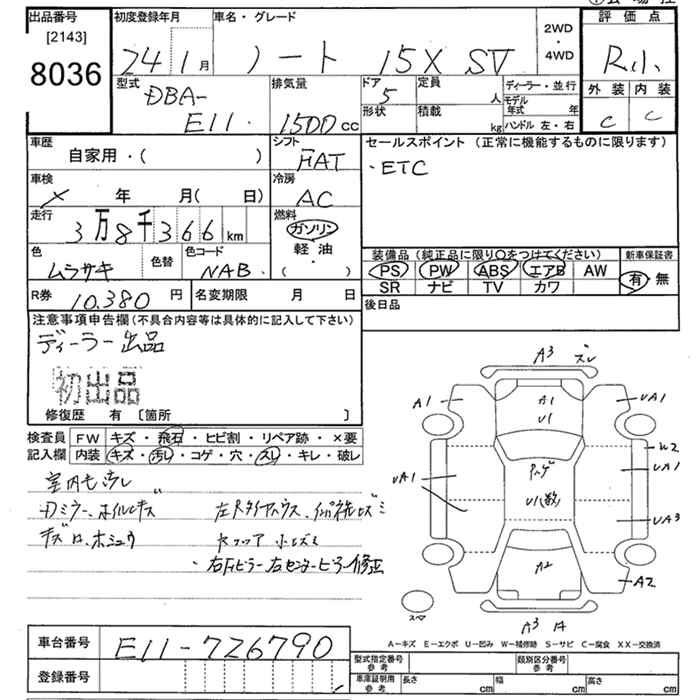 出品番号 [2143] 8036
初度登録年月 24 1月
車名・グレード ノート 15X SV
2WD・4WD
評価点 R小
外装 C 内装 C
型式 DBA-E11
排気量 1500cc
ドア形状 5
定員 人
積載 kg
ディーラー・並行
モデル年式 年
ハンドル 左・右
車歴 自家用・( )
シフト FAT
セールスポイント (正常に機能するものに限ります)
・ETC
車検 × 年 月( 日)
冷房 AC
走行 3万8千366km
燃料 ガソリン 軽油 ・( )
色 ムラサキ 色替
色コード NAB
装備品 (純正品に限り○をつけてください)
PS PW ABS エアB AW
SR ナビ TV カワ
新車保証書 有・無
R券 10,380円
名変期限 月 日
後日品
注意事項申告欄(不具合内容等は具体的に記入して下さい)
ディーラー出品
初出品
修復歴 有 〔箇所 〕
検査員記入欄
FW キズ・飛石・ヒビ割・リペア跡・×要
内装 キズ・汚レ・コゲ・穴・スレ・キレ・破レ
室内モ汚レ
ドアミラー、ホイルキズ
・右Fピラー右センターピラー修正
A3 ズレ
A1
A1
U1
UA1
W2
UA1
UA1
U1(数)
UA3
A2
A2
スペア
A3
A-キズ E-エクボ U-凹み W-補修跡 S-サビ C-腐食 XX-交換済
車台番号 E11-726790
登録番号
型式指定番号 参考
類別区分番号 参考
車庫証明用 参考 長さ cm 幅 cm 高さ cm